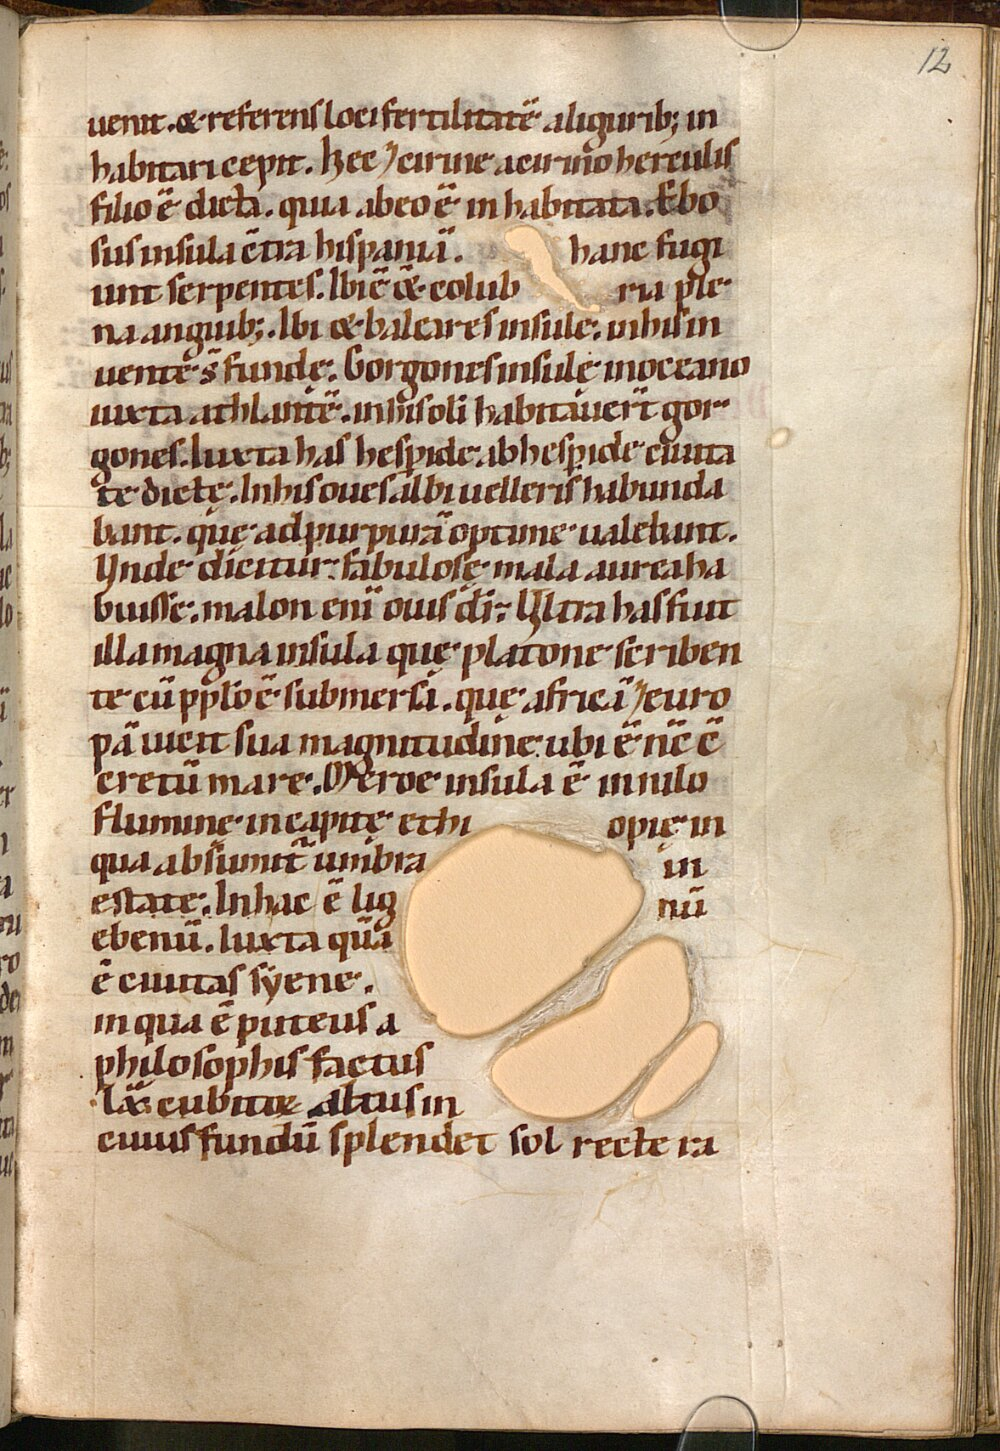 12
uenit. & referens loci fertilitatē a liguribꝫ in
habitari cepit. hec ⁊ cirine a cirino herculis
filio ē dicta. quia ab eo ē inhabitata. Ebo
sus insula ē cͥtra hispaniā. hanc fugi
unt serpentes. Ibi ē & colub ria ple
na anguibꝫ. Ibi & baleares insulę. in his in
uentę s̄ fundę. Gorgones insulę in oceano
iuxta athlantē. in his oli habitauer̄t gor
gones. Iuxta has hespide ab hespide ciuita
te dictę. In his oues albi uelleris habunda
bant. quę ad purpurā optime ualebant.
Vnde dicitur fabulose mala aurea ha
buisse. malon enī ouis dr̄. Vltra has fuit
illa magna insula quę platone scriben
te cū pplo ē submersa. quę africā ⁊ euro
pā uicit sua magnitudine. ubi ē nc̄ c̄
cretū mare. Meroe insula ē in nilo
flumine in capite ethi opię in
qua absumit̄ umbra in
estate. In hac ē lig nū
ebenū. Iuxta quā
ē ciuitas syene.
in qua ē puteus a
philosophis factus
lx. cubitis altus in
cuius fundū splendet sol recte ra